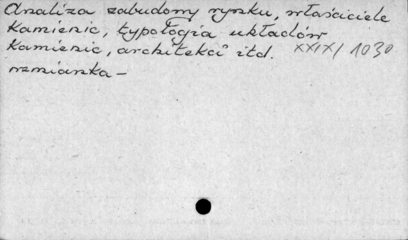 Analiza zabudowy rynku, właściciele
kamienic, typologia układów
kamienic, architekci itd. XXIX/1030
wzmianka –